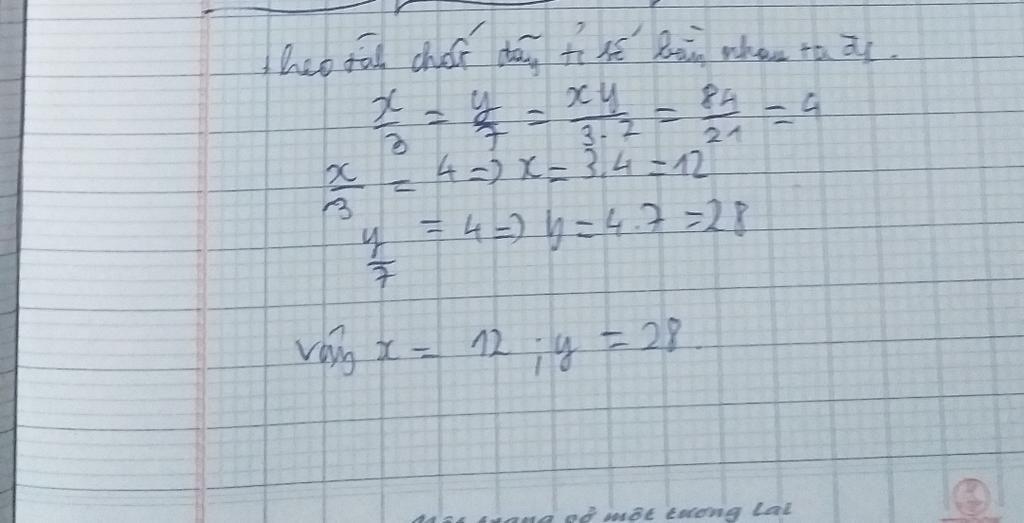 theo tính chất dãy tỉ số bằng nhau ta có.
x/3 = y/7 = xy/3.7 = 84/21 = 4
x/3 = 4 => x = 3.4 = 12
y/7 = 4 => y = 4.7 = 28
vậy x = 12 ; y = 28.
một tương lai